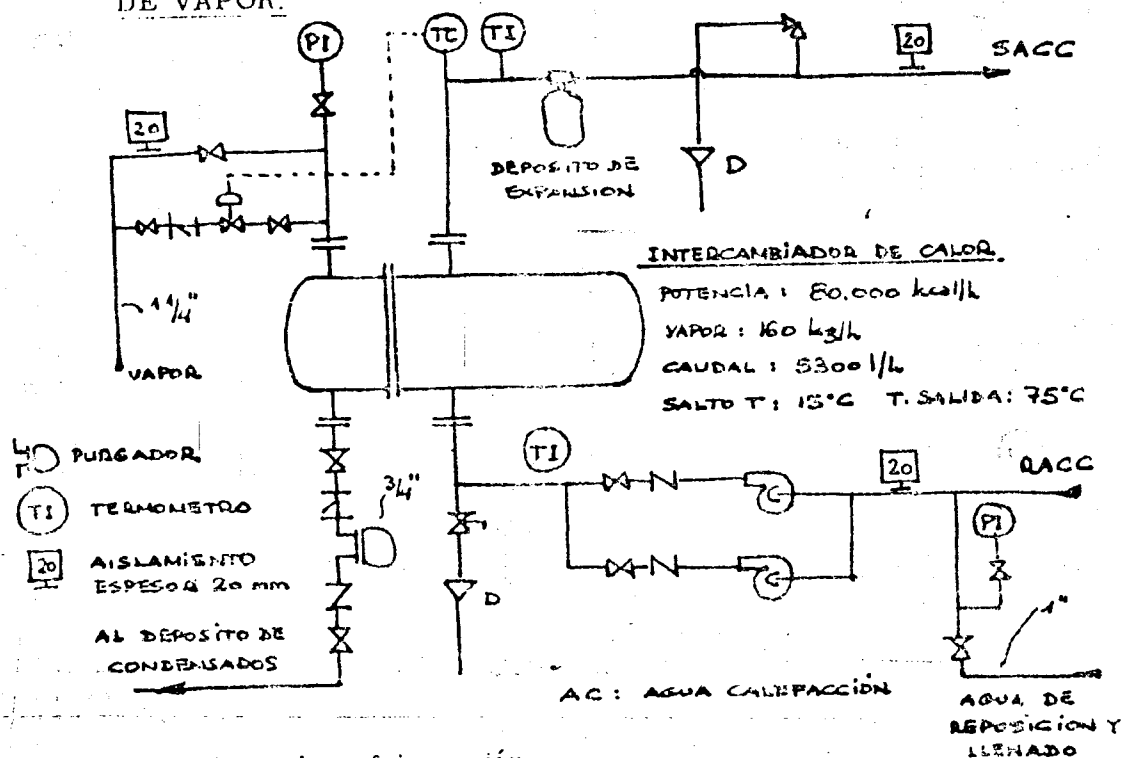 DE VAPOR.
PI
TC
TI
20
SACC
20
DEPOSITO DE
EXPANSION
D
1 1/4"
VAPOR
INTERCAMBIADOR DE CALOR.
POTENCIA : 80.000 kcal/h
VAPOR : 160 kg/h
CAUDAL : 5300 l/h
SALTO T : 15°C T. SALIDA: 75°C
PURGADOR
TI
TERMOMETRO
20
AISLAMIENTO
ESPESOR 20 mm
AL DEPOSITO DE
CONDENSADOS
3/4"
D
TI
20
RACC
PI
1"
AC : AGUA CALEFACCIÓN
AGUA DE
REPOSICION Y
LLENADO